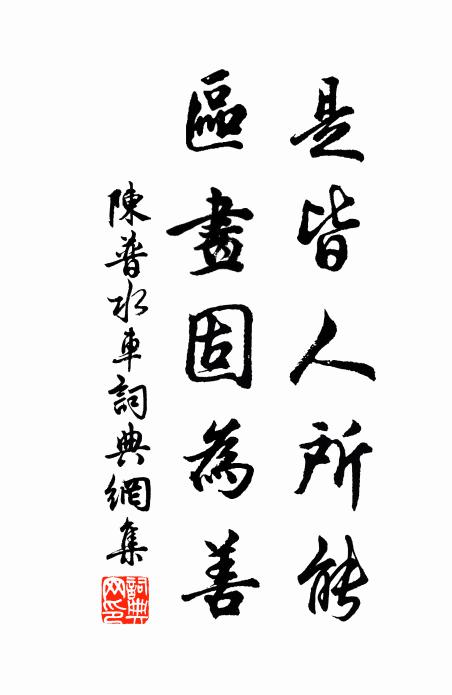 是皆人所能
區畫固為善
陳普水車詞典網集
詞典网印